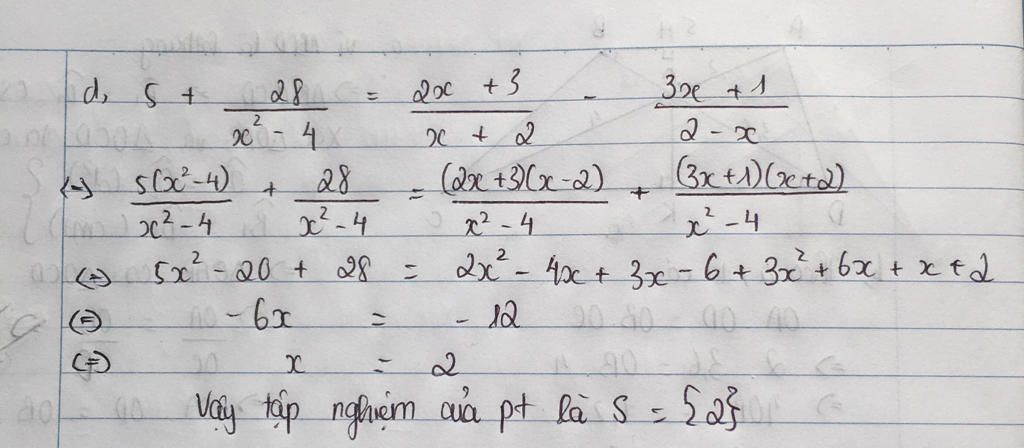 d, 5 + 28/(x² - 4) = (2x + 3)/(x + 2) - (3x + 1)/(2 - x)
(=) 5(x²-4)/(x²-4) + 28/(x²-4) = (2x+3)(x-2)/(x²-4) + (3x+1)(x+2)/(x²-4)
(=) 5x² - 20 + 28 = 2x² - 4x + 3x - 6 + 3x² + 6x + x + 2
(=) -6x = -12
(=) x = 2
Vậy tập nghiệm của pt là S = {2}